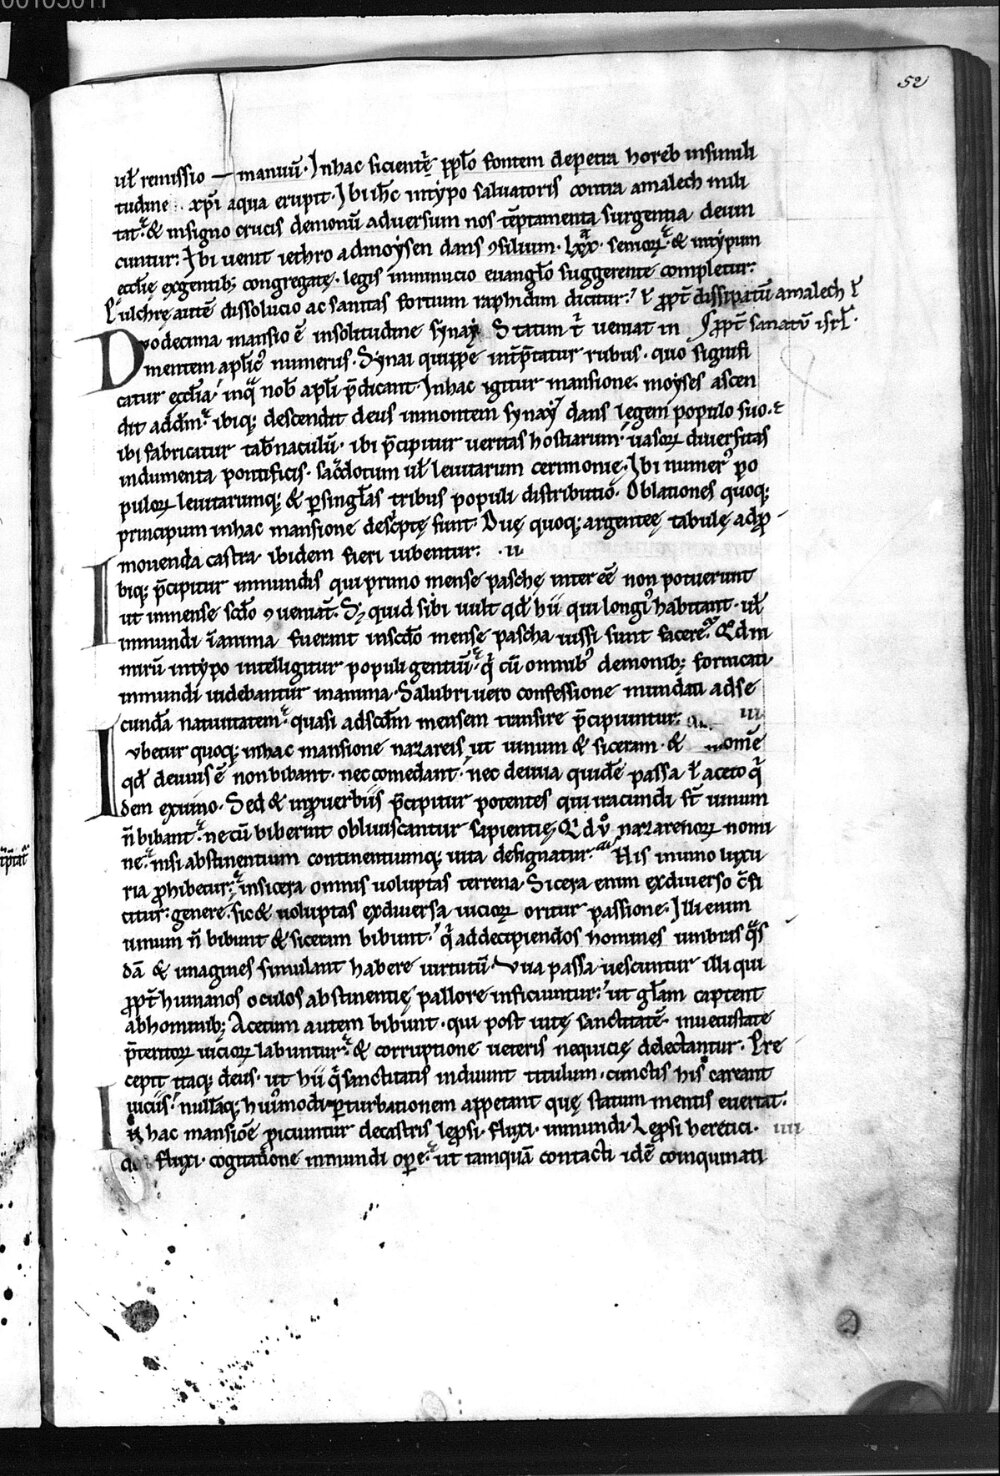 52
ul̃ remissio — manuū. In hac sicientẽ pp̃lo fontem de petra horeb in simili
tudine xp̃i aqua erupit. Ibi ih̃c in typo saluatoris contra amalech mili
tat. & in signo crucis demonū aduersum nos tẽptamenta surgentia deuin
cuntur. Ibi uenit iethro ad moysen dans ꝯsilium. lxx. senioꝝ. & in typum
ęcclię ex gentib; congregatę. legis in initucio euangl̃o suggerente completur.
Pulchrę autẽ dissolucio ac sanitas fortium raphidim dicitur. ł ꝓpt̃ dissipatū amalech ł
ꝓpt̃ sanatū isrl̃.
Duodecima mansio ẽ in solitudine synay. Statim t̃ ueniat in
mentem apl̃icꝰ numerus. Synai quippe int̃p̃tatur rubus. quo signifi
catur ęccl̃ia. in q̃ nob̃ apl̃i p̃dicant. In hac igitur mansione moyses ascen
dit ad dñm. ibiq; descendit deus in montem synay dans legem populo suo. &
ibi fabricatur tab̃naculū. ibi p̃cipitur ueritas hostiarum. uasoꝝ diuersitas
indumenta pontificis. sac̃dotum ul̃ leuitarum cerimonię. Ibi numerꝰ po
puloꝝ leuitarumq; & p singl̃as tribus populi distributiō. Oblationes quoq;
principum in hac mansione desc̃ptę sunt. Duę quoq; argenteę tabulę ad ꝓ
mouenda castra ibidem fieri iubentur. .ii.
Ibiq; p̃cipitur inmundis qui primo mense paschę inter eẽ non potuerunt
ut in mense scđo ꝯueniāt. Sꝫ quid sibi uult qđ hii qui longiꝰ habitant. ul̃
inmundi ĩ anima fuerant in scđo mense pascha iussi sunt facere.
mirū in typo intelligitur populi gentiū. q̃ cū omnibꝰ demonib; fornicati
inmundi uidebantur in anima. Salubri uero confessione mundati ad se
cundā natiuitatem. quasi ad scđm mensem transire p̃cipiuntur. iii
Iubetur quoq; in hac mansione nazareis ut uinum & siceram. &
qđ de uuis ẽ non bibant. nec comedant. nec de uua quidẽ passa ł aceto q̃
dem ex uino. Sed & in ꝓuerbiis p̃cipitur potentes qui iracundi st̃ uinum
ñ bibant. ne cū biberint obliuiscantur sapientię. Qđ ů nazarenoꝝ nomi
ne. nisi abstinentium continentiumq; uita designatur. His in uino luxu
ria ꝓhibetur. in sicera omnis uoluptas terrena. Sicera enim ex diuerso c̃fi
citur genere. sic & uoluptas ex diuersa uicioꝝ oritur passione. Illi enim
uinum ñ bibunt & siceram bibunt. q̃ ad decipiendos homines umbras q̃s
dā & imagines simulant habere uirtutū. Vua passa uescuntur illi qui
ꝓpt̃ humanos oculos abstinentię pallore inficiuntur. ut gl̃am captent
ab hominib; Acetum autem bibunt. qui post uitę sanctitatẽ in uetustate
p̃teritoꝝ uicioꝝ labuntur. & corruptione ueteris nequicię delectantur. Pre
cepit itaq; deus. ut hii q̃ sanctitatis induunt titulum. cunctis his careant
uiciis. nullāq; huiꝰmodi ꝑturbationem appetant quę statum mentis euertat.
In hac mansiōe ꝓiciuntur de castris lep̃si. fluxi. inmundi. Lep̃si heretici. iiii
fluxi. cogitatiōe inmundi ope. ut tamquā contacti idẽ coinquinati